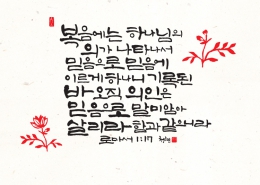 복음에는 하나님의
의가 나타나서
믿음으로 믿음에
이르게 하나니 기록된
바 오직 의인은
믿음으로 말미암아
살리라 함과 같으니라
로마서 1:17